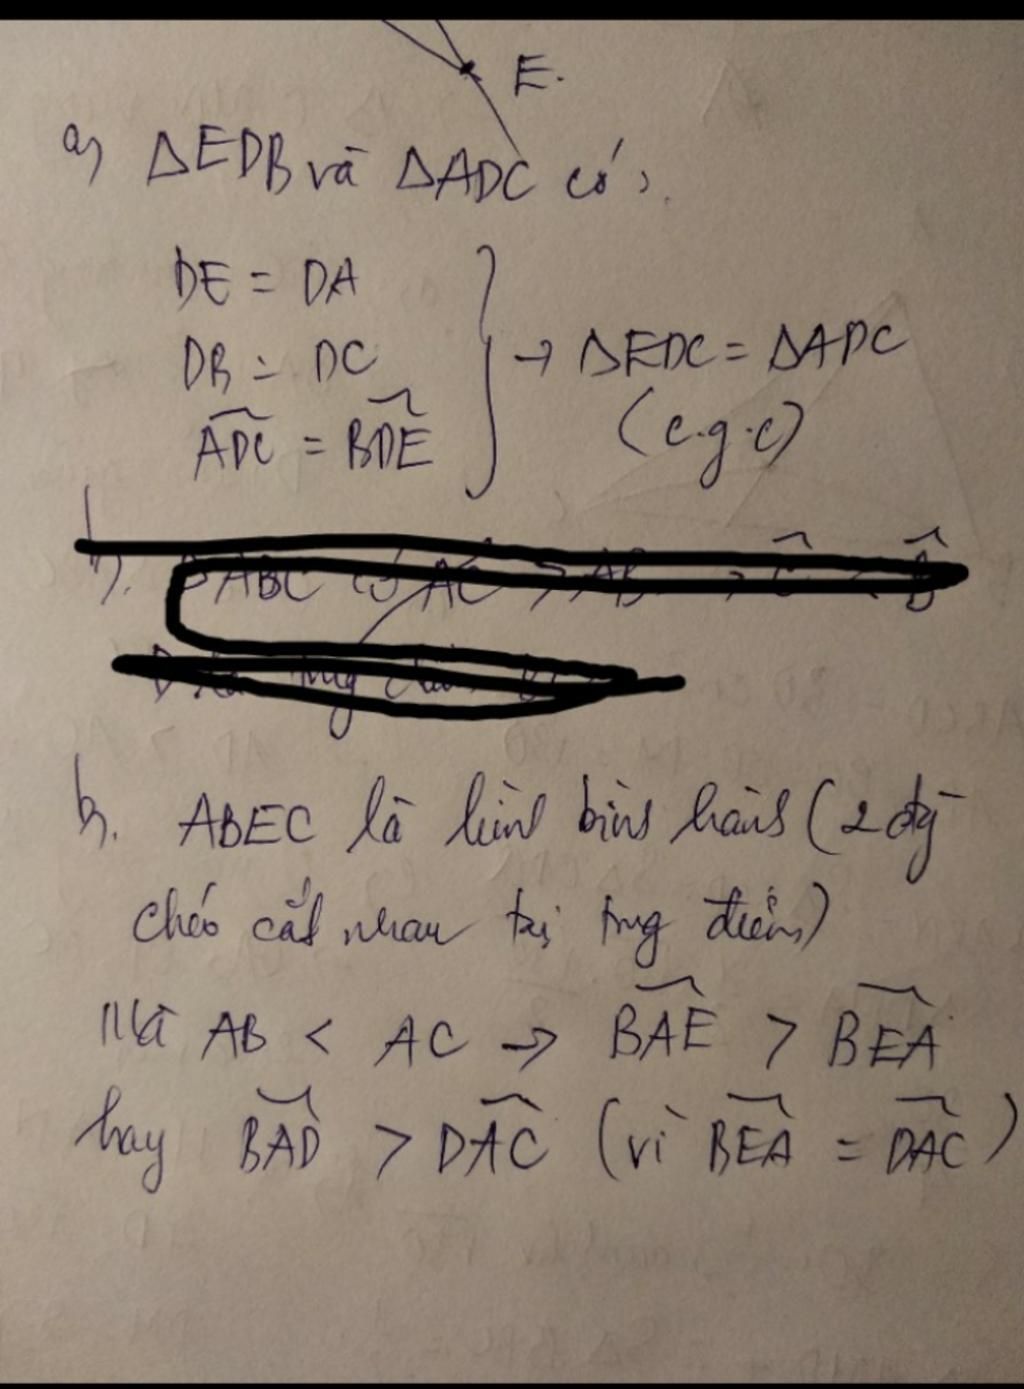 E.
a, ΔEDB và ΔADC có:
DE = DA
DB = DC → ΔEDC = ΔADC
ADC = BDE (c.g.c)
b. ABEC là hình bình hành (2 đg
chéo cắt nhau tại trung điểm)
Mà AB < AC → BAE > BEA
hay BAD > DAC (vì BEA = DAC)